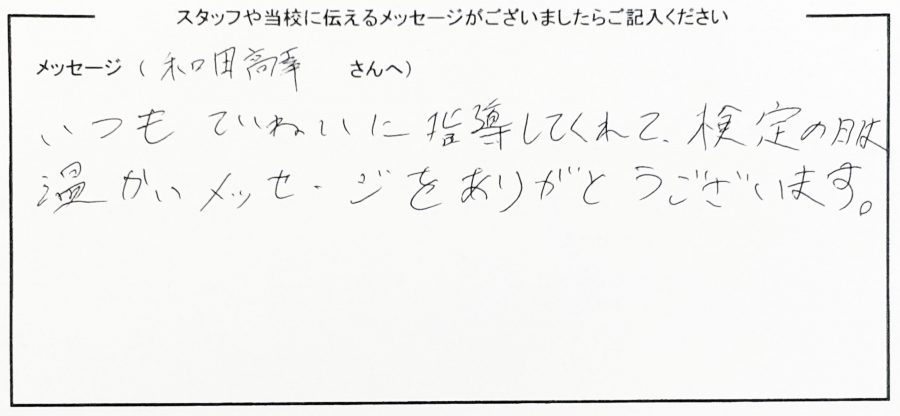 スタッフや当校に伝えるメッセージがございましたらご記入ください
メッセージ（和田高幸 さんへ）
いつもていねいに指導してくれて、検定の時は
温かいメッセージをありがとうございます。